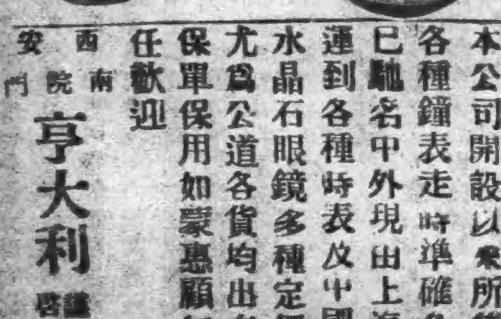 本公司開設以來所
各種鐘表走時準確
已馳名中外現由上海
運到各種時表及中國
水晶石眼鏡多種定
尤爲公道各貨均出
保單保用如蒙惠顧
任歡迎
西安
南院門
亨大利
謹啓